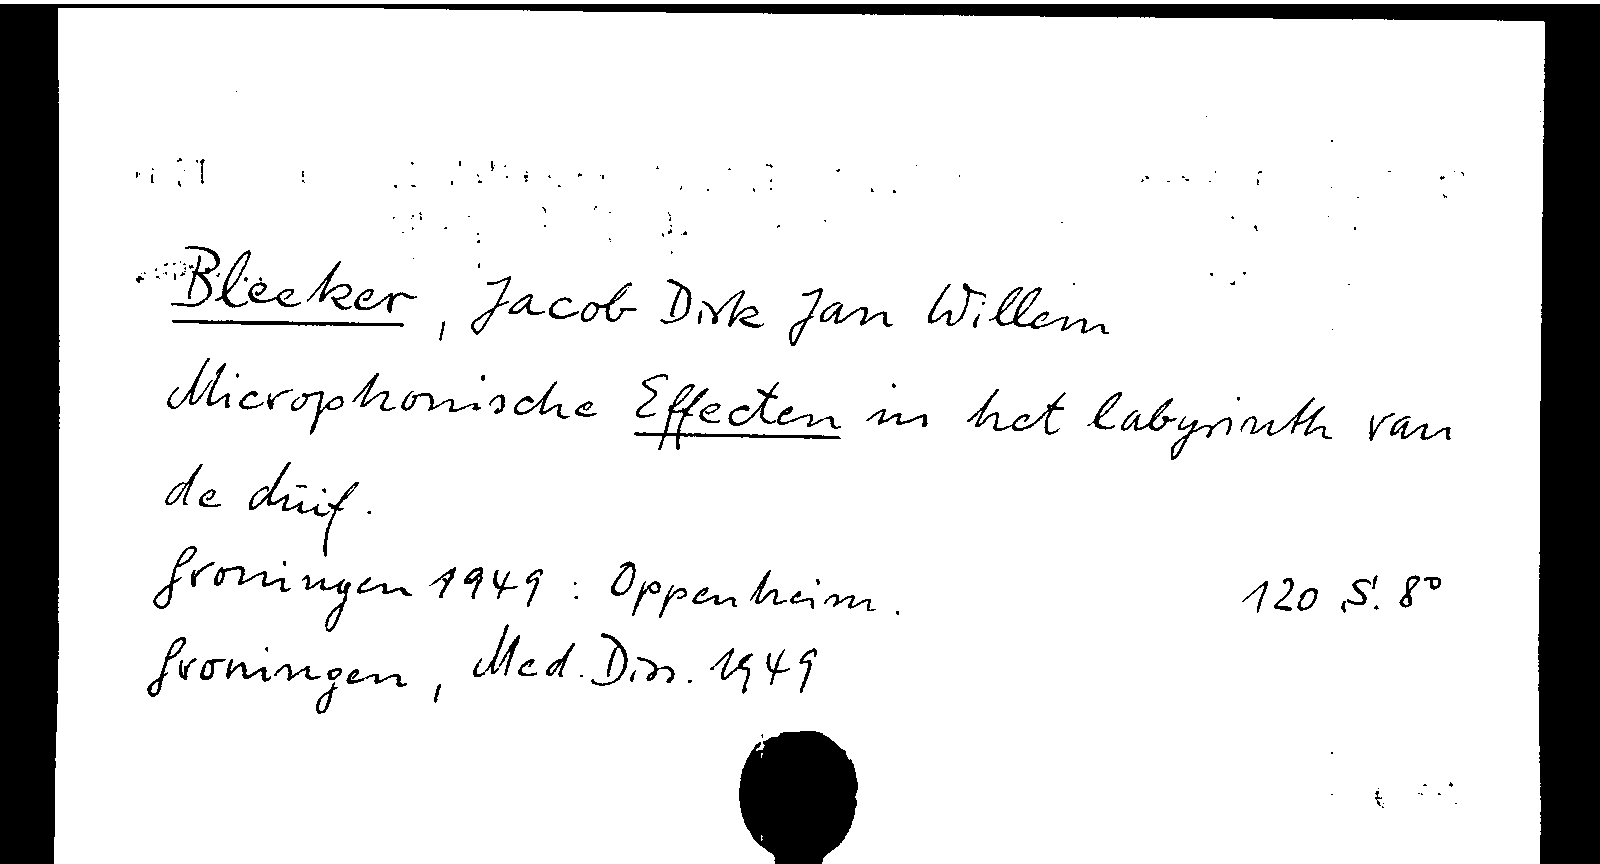 Bleeker, Jacob Dirk Jan Willem
Microphonische Effecten in het labyrinth van
de duif.
Groningen 1949 : Oppenheim. 120 S. 8°
Groningen, Med. Diss. 1949